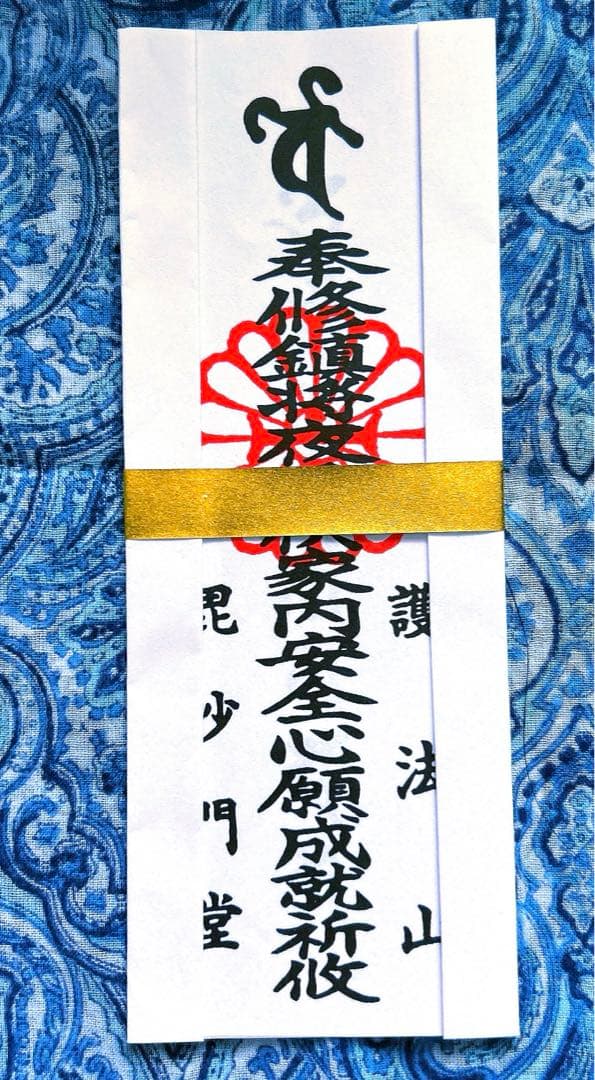 護法山
奉修鎮将夜家内安全心願成就祈攸
毘沙門堂